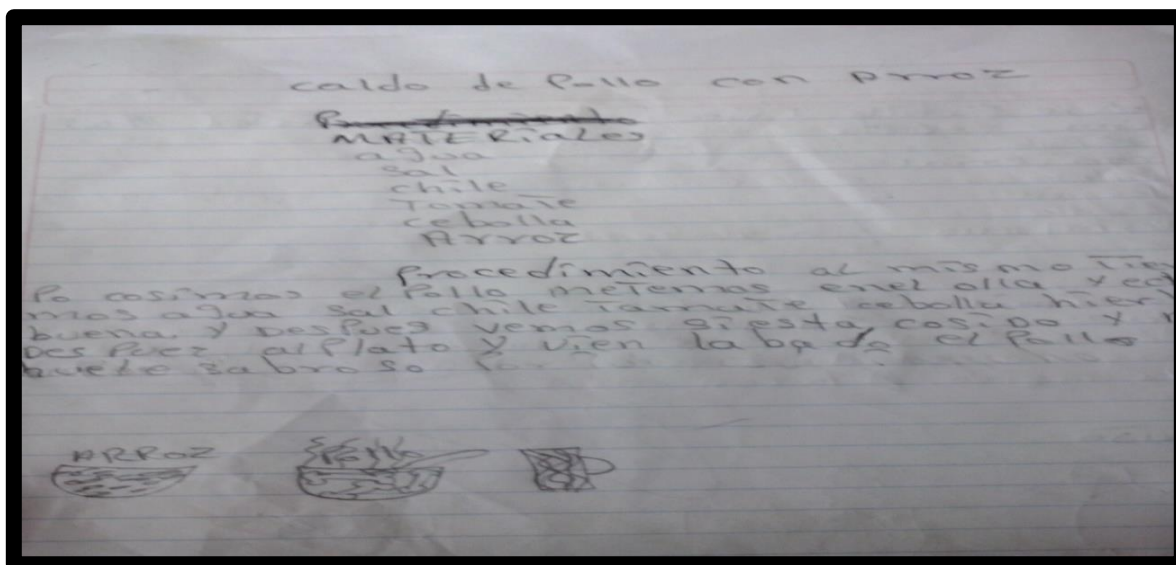 caldo de Pollo con Arroz
MATERiales
agua
sal
chile
Tomate
cebolla
Arroz
Procedimiento al mismo Tiem
Po cosimos el Pollo metemos en el olla y ec
mos agua sal chile Tomate cebolla hier
buena y Despues vemos si esta cosido y
Des Puez al Plato y vien labado el Pollo
huele sabroso
ARROZ Pollo